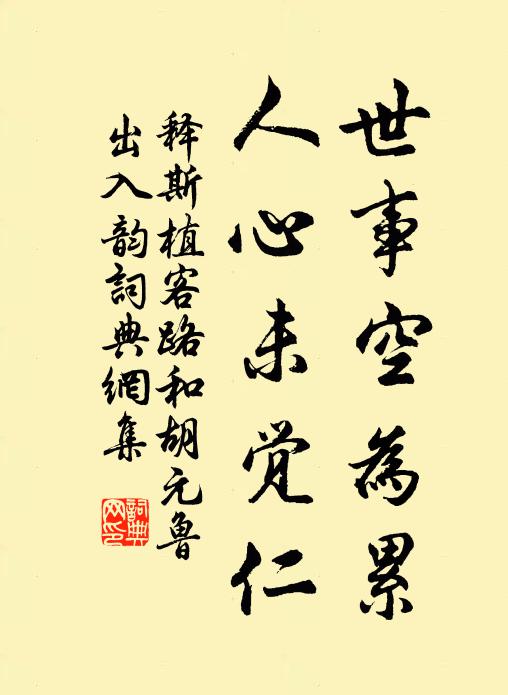 世事空為累
人心未觉仁
释斯植客路和胡元鲁
出入韵詞典網集
詞典网印